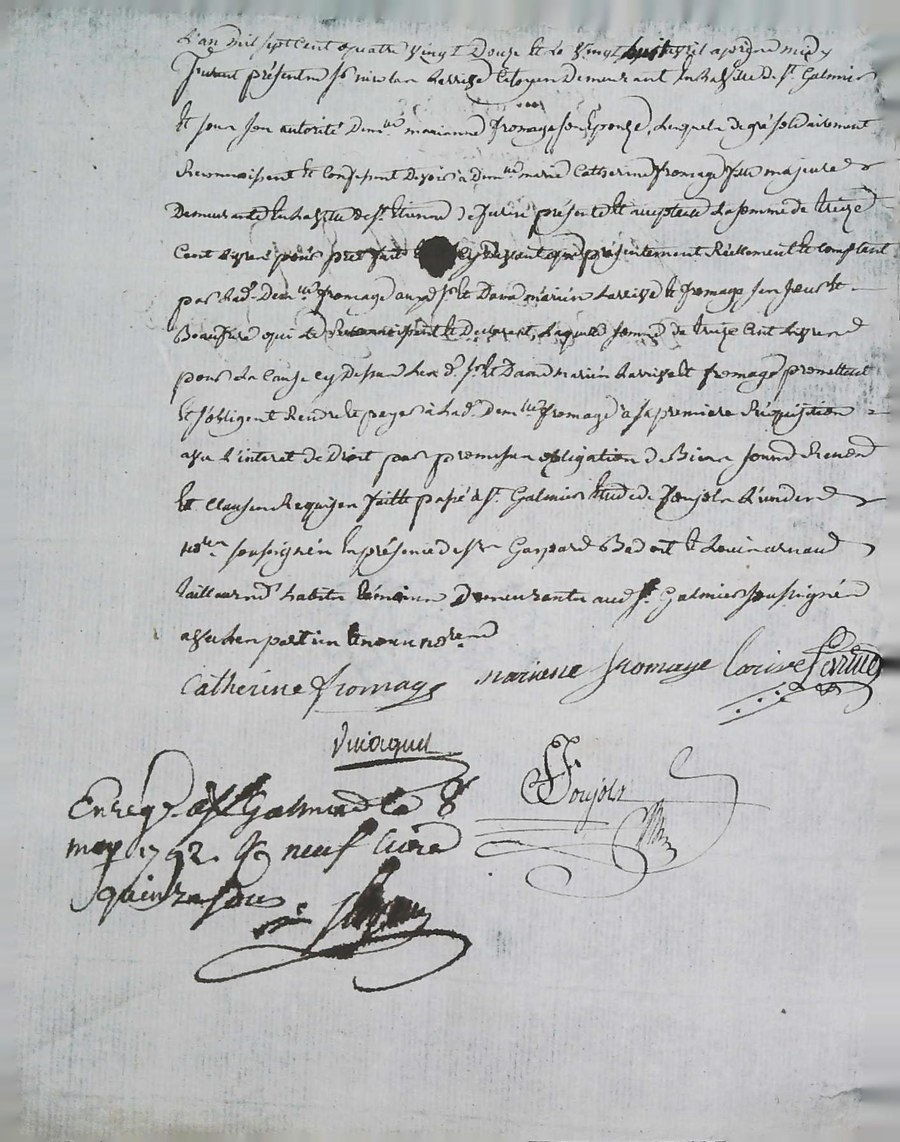 L'an mil sept cent quatre vingt Douze et Le vingt huit avril après midy
furent présents sr nicolas Larrive Citoyen Demeurant en la ville de st. Galmier
et sous son autorité Demlle marianne fromage son Epouse, Lesquels de gré solidairement
Reconnoissent et Confessent Devoir à demlle marie Catherine fromage fille majeure
Demeurante en la ville de st. Etienne icy présente et acceptante La somme de treize
Cent Livres pour pret fait cy Devant que présentement Réellement et comptant
par lad. Demlle fromage auxd. sr et Dame mariés Larrive et fromage ses soeur et
Beaufrere qui le Reconnoissent et Declarent, Laquelle somme de treize Cent Livres
pour La Cause cy Dessus Lesd. sr et Dame Mariés Larrive et fromage promettent
et s'obligent Rendre et payer à Lad. Demlle fromage à sa premiere Réquisition
avec L'interet de Droit par promesses obligation de Biens soumis Renon
et Clauses Requises fait et passé à st. Galmier Etude de Poujols L'un des
nores soussignés en présence de sr Gaspard Badort et Louis arnaud
tailleurs d'habits témoins Demeurants aud. st. Galmier soussignés
avec les parties et nous nores
Catherine fromage mariane fromage larive
Poujols
Enreg. à st Galmier le 8
may 1792. R neuf livres
quinze sous